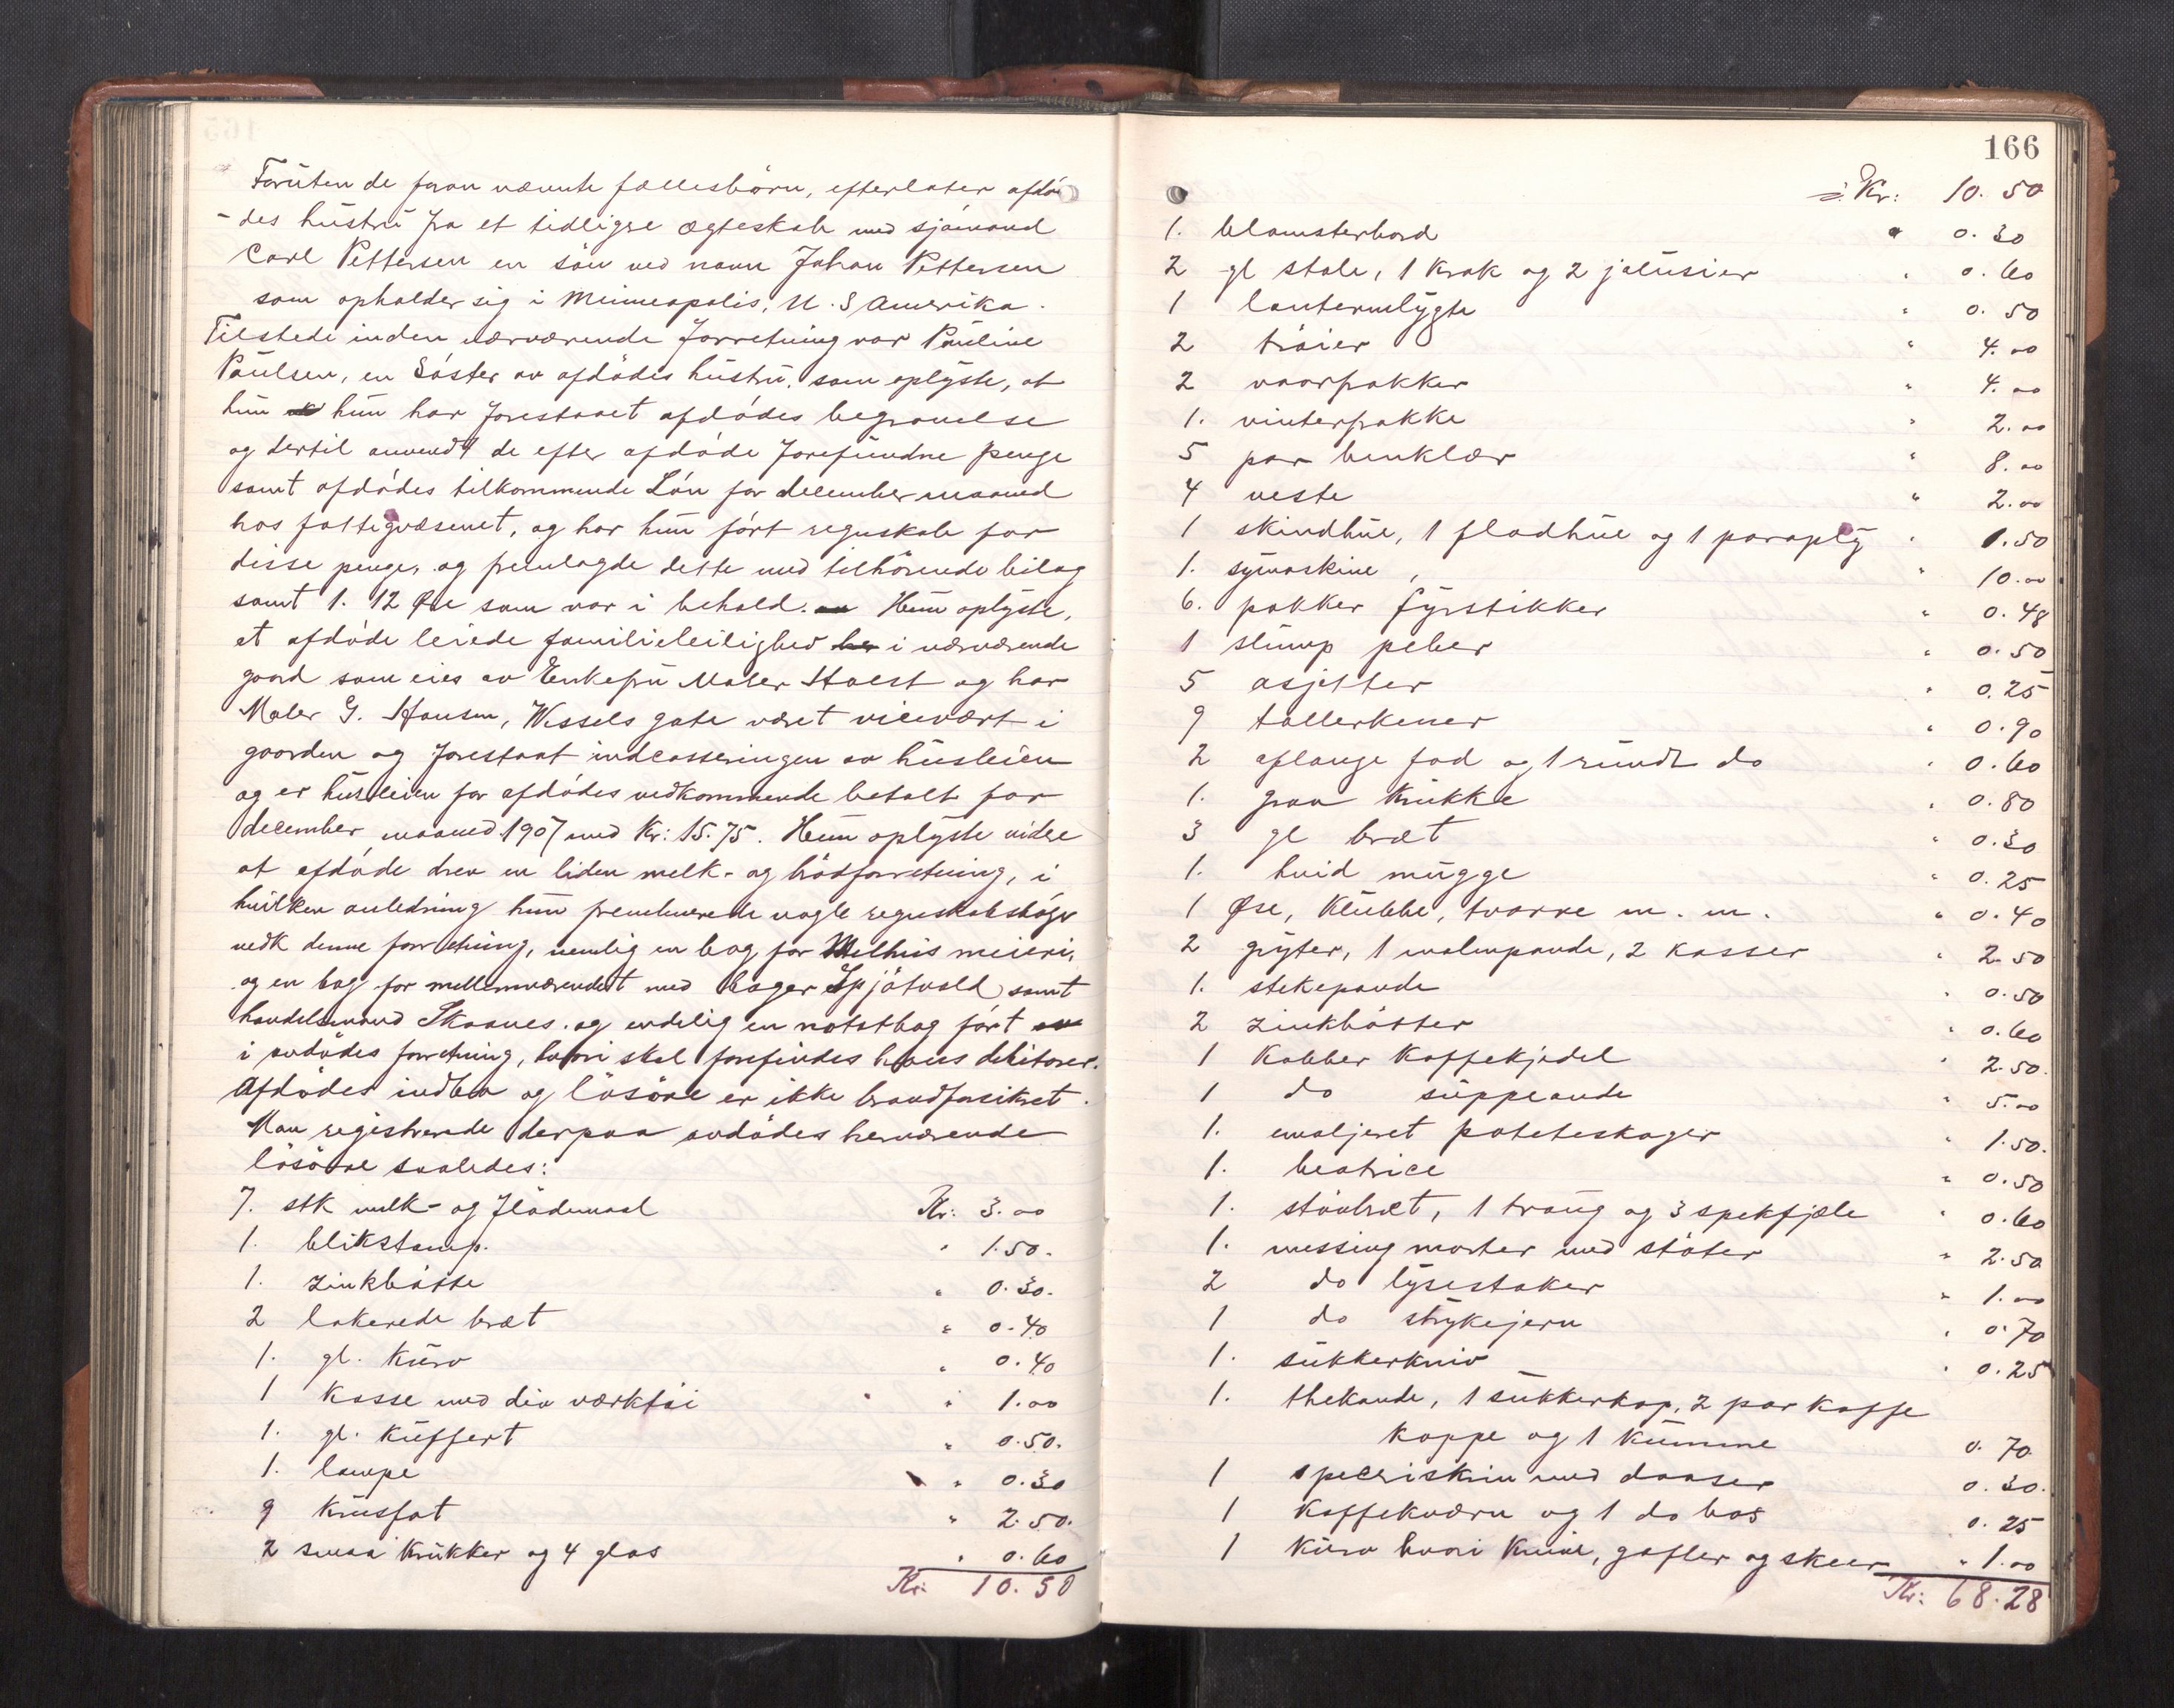 Foruten de foran nævnte fællesbörn, efterlater afdö-
-des hustru fra et tidligre ægteskab med sjömand
Carl Pettersen en sön ved navn Johan Pettersen
som opholder sig i Minneapolis, U. S Amerika.
Tilstede inden nærværende forretning var Pauline
Paulsen, en Söster av afdödes hustru, som oplyste, at
hun hun har forestaaet afdödes begravelse
og dertil anvendt de efter afdöde forefundne penge
samt afdödes tilkommende Lön for december maaned
hos fattigvæsenet, og har hun fört regnskab for
disse penge, og fremlagde dette med tilhörende bilag
samt 1. 12 Øre som var i behold. Hun oplyste,
at afdöde leiede familieleilighed i nærværende
gaard som eies av Enkefru Maler Holst og har
Maler G. Hansen, Wessels gate været vicevært i
gaarden og forestaat indcasseringen av husleien
og er husleien for afdödes vedkommende betalt for
december maaned 1907 med Kr: 15.75. Hun oplyste videre
at afdöde drev en liden melk- og brödforretning, i
hvilken anledning hun fremleverede nogle regnskabsböger
vedk denne forretning, nemlig en bog for Melhus meieri,
og en bog for mellemværendet med bager Spjötvold samt
handelsmand Skaanes. og endelig en notatbog fört
i avdödes forretning, hvori skal forefindes hans debitorer.
Afdödes indbo og lösöre er ikke brandforsikret.
Man registrerede derpaa avdödes herværende
lösöre saaledes:
7. stk melk- og flödemaal Kr: 3.00
1. blikstamp. " 1.50.
1. zinkbötte " 0.30.
2 lakerede bræt " 0.40
1. gl. kurv " 0.40
1 kasse med div værktöi " 1.00
1. gl. kuffert " 0.50.
1. lampe " 0.30
9 krusfat " 2.50.
2 smaa krukker og 4 glas " 0.60
Kr: 10.50
166
Kr: 10.50
1. blomsterbord " 0.30
2 gl stole, 1 krak og 2 jalusier " 0.60
1 lanternlygte " 0.50
2 tröier " 4.00
2 vaarfrakker " 4.00
1. vinterfrakke " 2.00
5 par benklær " 8.00
4 veste " 2.00
1 skindhue, 1 flodhue og 1 paraply " 1.50
1. symaskine " 10.00
6. pakker fyrstikker " 0.48
1 slump peber " 0.50
5 asjetter " 0.25
9 tallerkener " 0.90
2 aflange fad og 1 rundt do " 0.60
1. graa krukke " 0.80
3 gl bræt " 0.30
1. hvid mugge " 0.25
1 Øse, klubbe, tvarre m. m. " 0.40
2 gryter, 1 malmpande, 2 kasser " 2.50
1. stekepande " 0.50
2 zinkbötter " 0.60
1 kobber kaffekjedel " 2.50.
1 do suppeande " 5.00
1. emaljeret poteteskoger " 1.50.
1. beatrice " 0.50
1. stövbræt, 1 traug og 3 spekfjæle " 0.60
1. messing morter med stöter " 2.50
2 do lysestaker " 1.00
1 do strykejern " 0.70
1. sukkerkniv " 0.25
1. thekande, 1 sukkerkop, 2 par kaffe
koppe og 1 kumme 0.70
1 speceriskrin med daaser 0.30.
1 kaffekværn og 1 do bos 0.25
1 kurv hvori knive, gafler og skeer " 1.00
Kr: 68.28